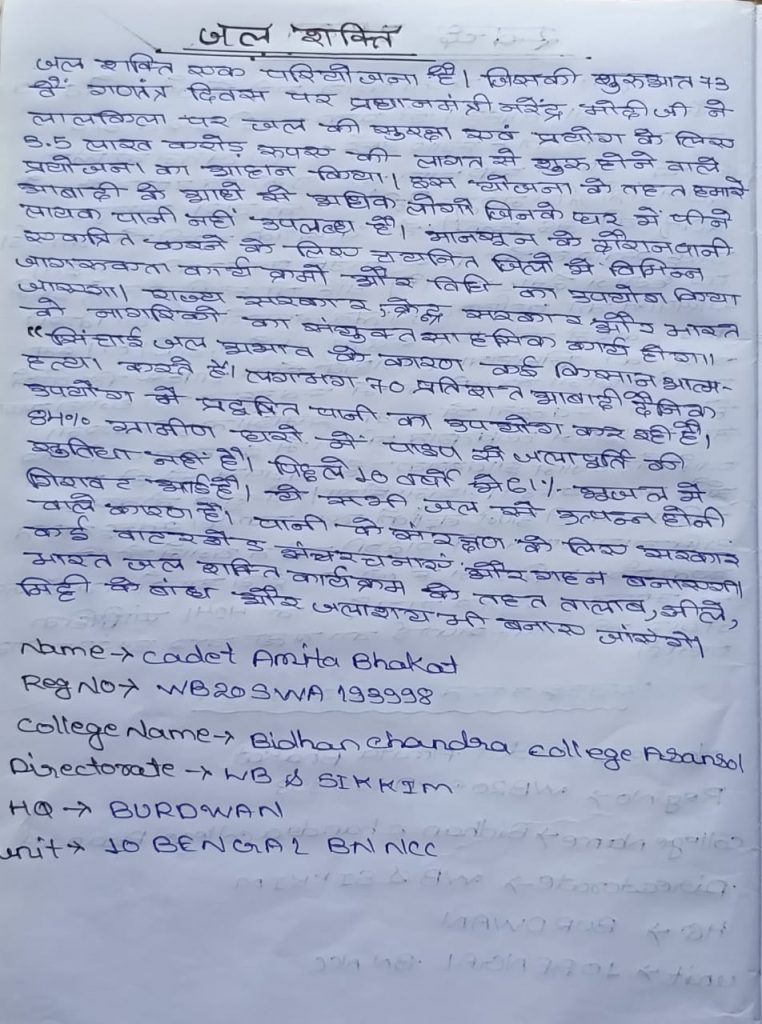 जल शक्ति
जल शक्ति एक परियोजना है। जिसकी शुरुआत 73
वें गणतंत्र दिवस पर प्रधानमंत्री नरेंद्र मोदी जी ने
लालकिला पर जल की सुरक्षा एवं प्रयोग के लिए
3.5 लाख करोड़ रुपए की लागत से शुरू होने वाले
प्रयोजना का आहान किया। इस योजना के तहत हमारे
आबादी के आधे से अधिक लोगों जिनके घर में पीने
लायक पानी नहीं उपलब्ध है। मानसून के दौरान पानी
एकत्रित करने के लिए चयनित जिलों में विभिन्न
जागरूकता कार्यक्रमों और विधि का उपयोग किया
जाएगा। राज्य सरकार, केन्द्र सरकार और भारत
के नागरिकों का संयुक्त साहसिक कार्य होगा।।
"सिंचाई जल अभाव के कारण कई किसान आत्म-
हत्या करते हैं। लगभग 70 प्रतिशत आबादी दैनिक
उपयोग में प्रदूषित पानी का उपयोग कर रही है।
84% ग्रामीण घरों में पाइप से जलापूर्ति की
सुविधा नहीं है। पिछले 10 वर्षों में 61% भूजल में
गिरावट आई है। ये सभी जल से उत्पन्न होनी
वाले कारण हैं। पानी के संरक्षण के लिए सरकार
कई वाटरशेड संरचनाएं और गहन बनाएगी।
भारत जल शक्ति कार्यक्रम के तहत तालाब, झीलें,
मिट्टी के बांध और जलाशय भी बनाए जाएंगे।
Name→ Cadet Amita Bhakat
Reg No→ WB20SWA193998
College Name→ Bidhan chandra college Asansol
Directorate → WB & SIKKIM
HQ → BURDWAN
unit→ 10 BENGAL BN NCC